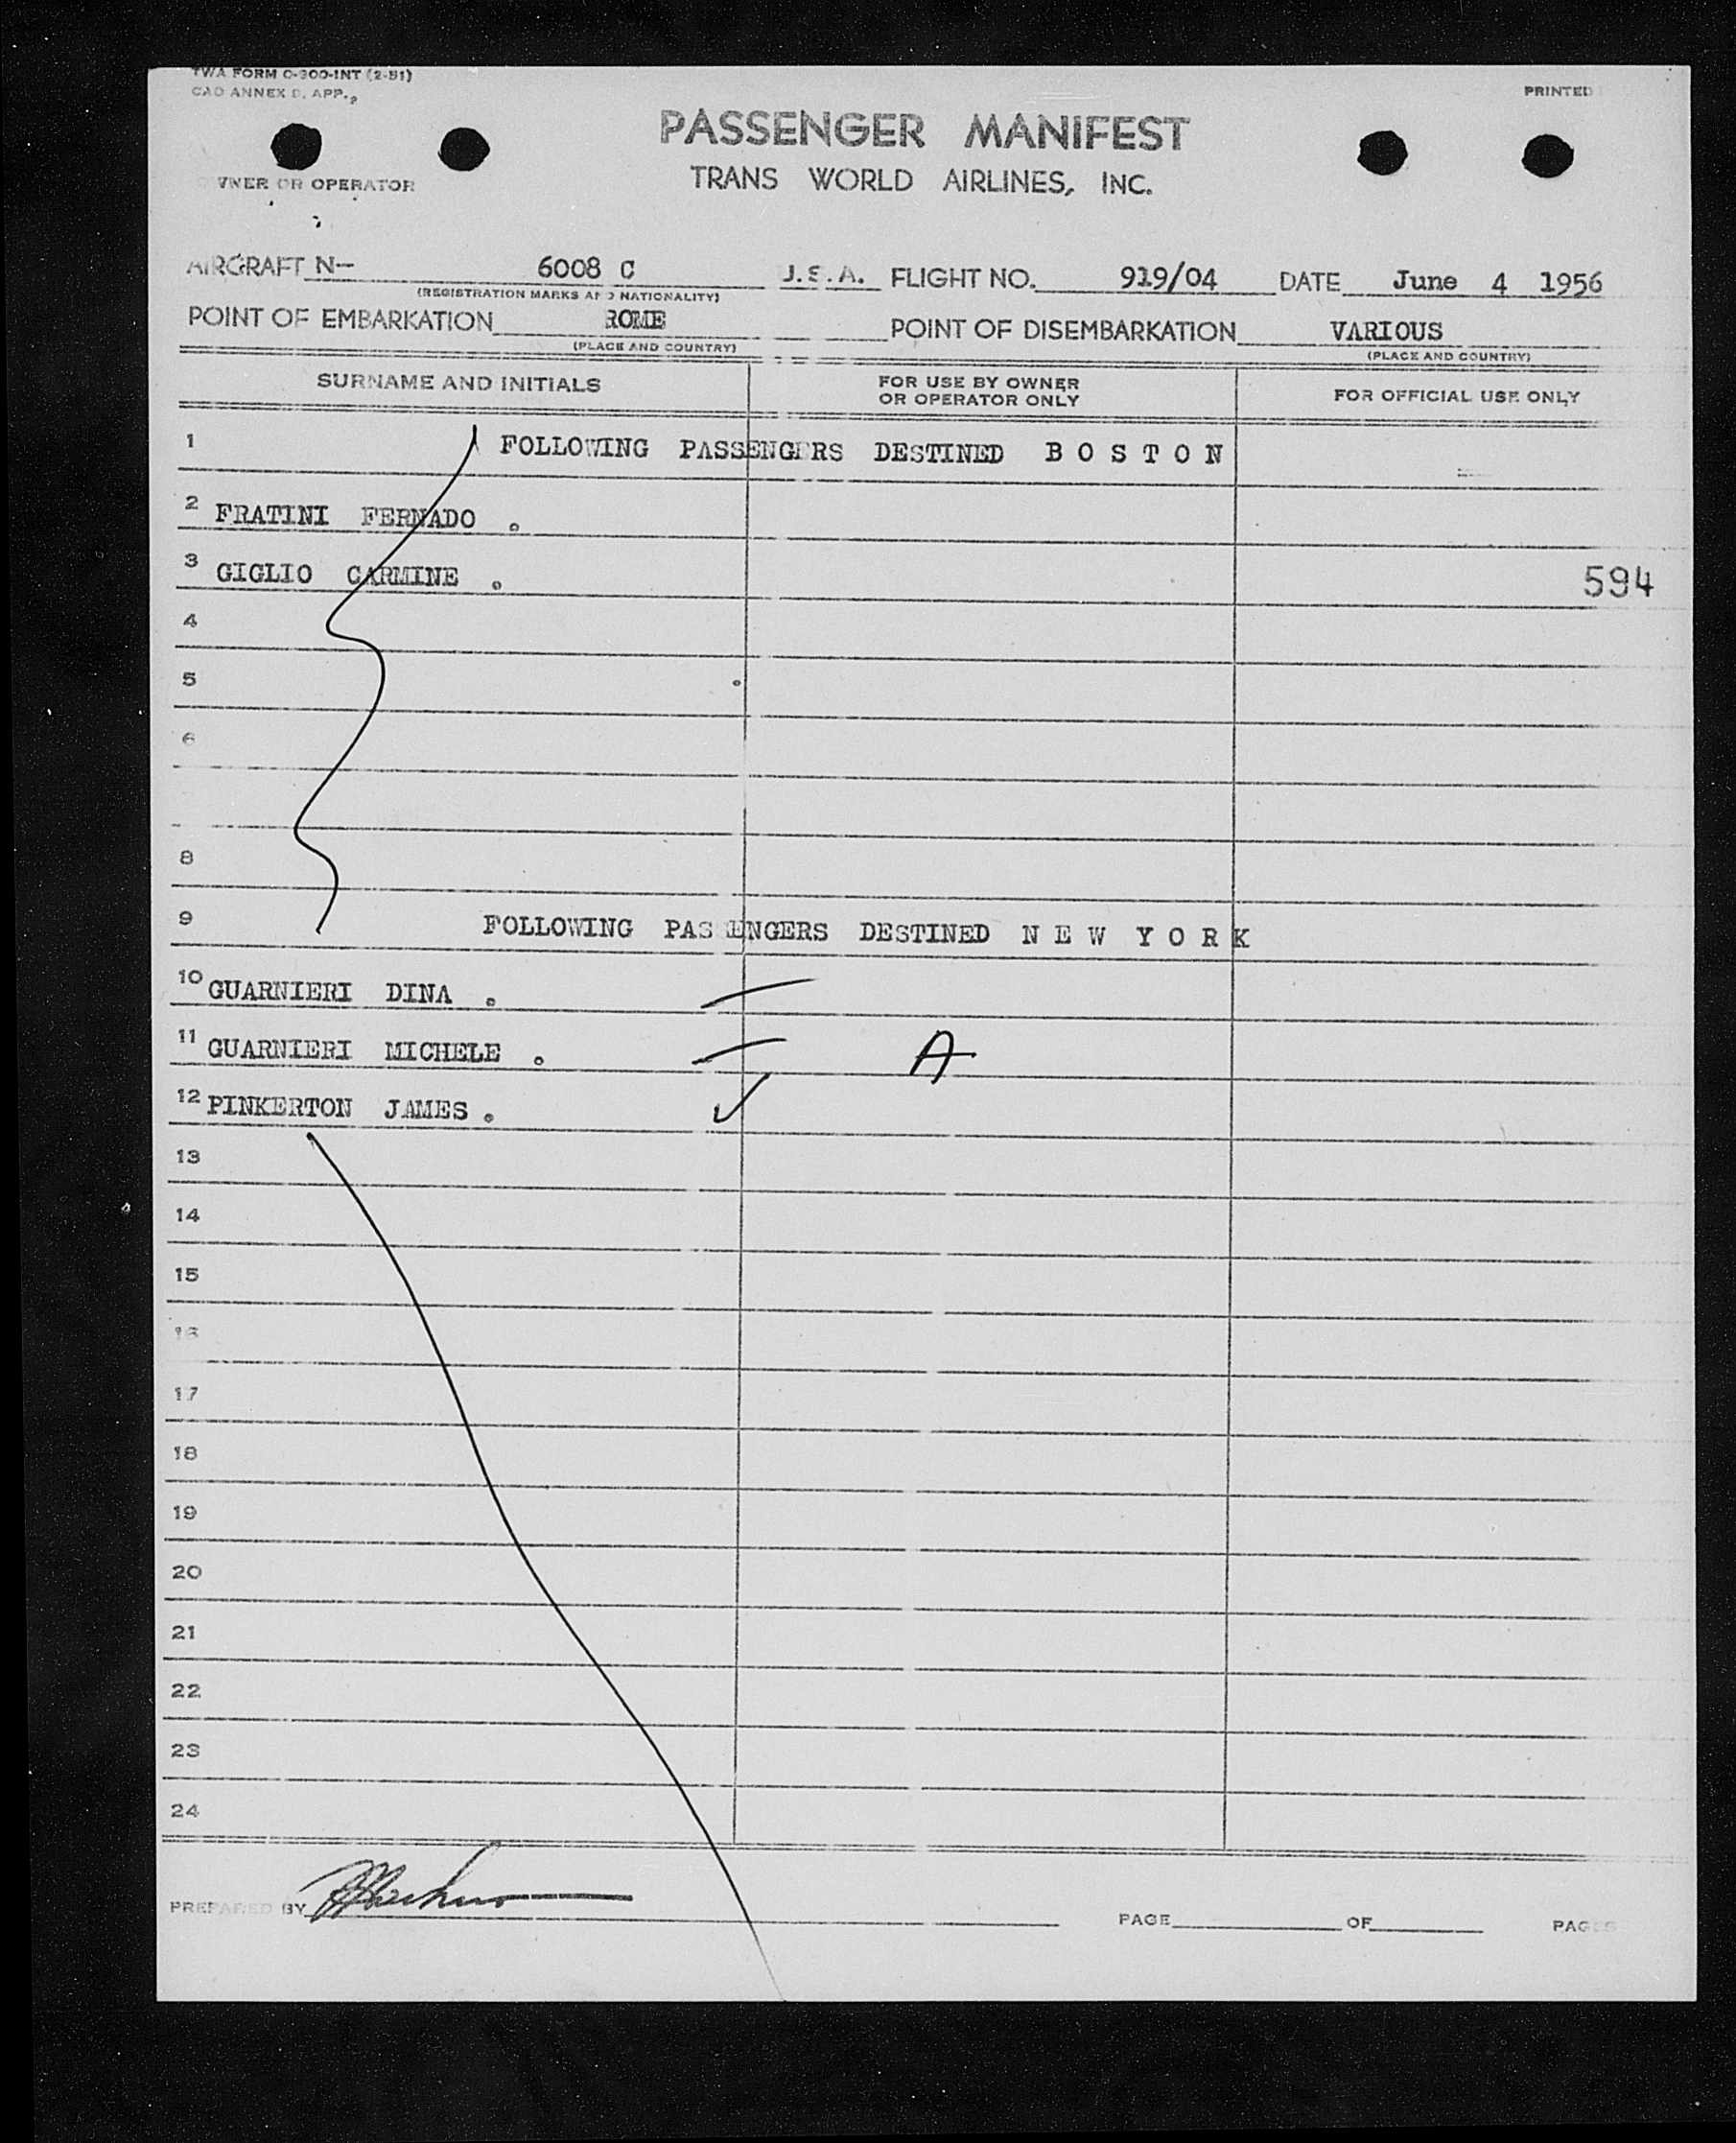 TWA FORM O-300-INT (2-51)
CAO ANNEX 9, APP.,
PRINTED
PASSENGER MANIFEST
TRANS WORLD AIRLINES, INC.
WNER OR OPERATOR
AIRCRAFT N- 6008 C U.S.A. FLIGHT NO. 919/04 DATE June 4 1956
(REGISTRATION MARKS AND NATIONALITY)
POINT OF EMBARKATION ROME POINT OF DISEMBARKATION VARIOUS
(PLACE AND COUNTRY) (PLACE AND COUNTRY)
SURNAME AND INITIALS FOR USE BY OWNER OR OPERATOR ONLY FOR OFFICIAL USE ONLY
1 FOLLOWING PASSENGERS DESTINED B O S T O N
2 FRATINI FERNADO .
3 GIGLIO CARMINE . 594
4
5
6
8
9 FOLLOWING PASSENGERS DESTINED N E W Y O R K
10 GUARNIERI DINA .
11 GUARNIERI MICHELE . A
12 PINKERTON JAMES . ✓
13
14
15
16
17
18
19
20
21
22
23
24
PREPARED BY PAGE OF PAGES